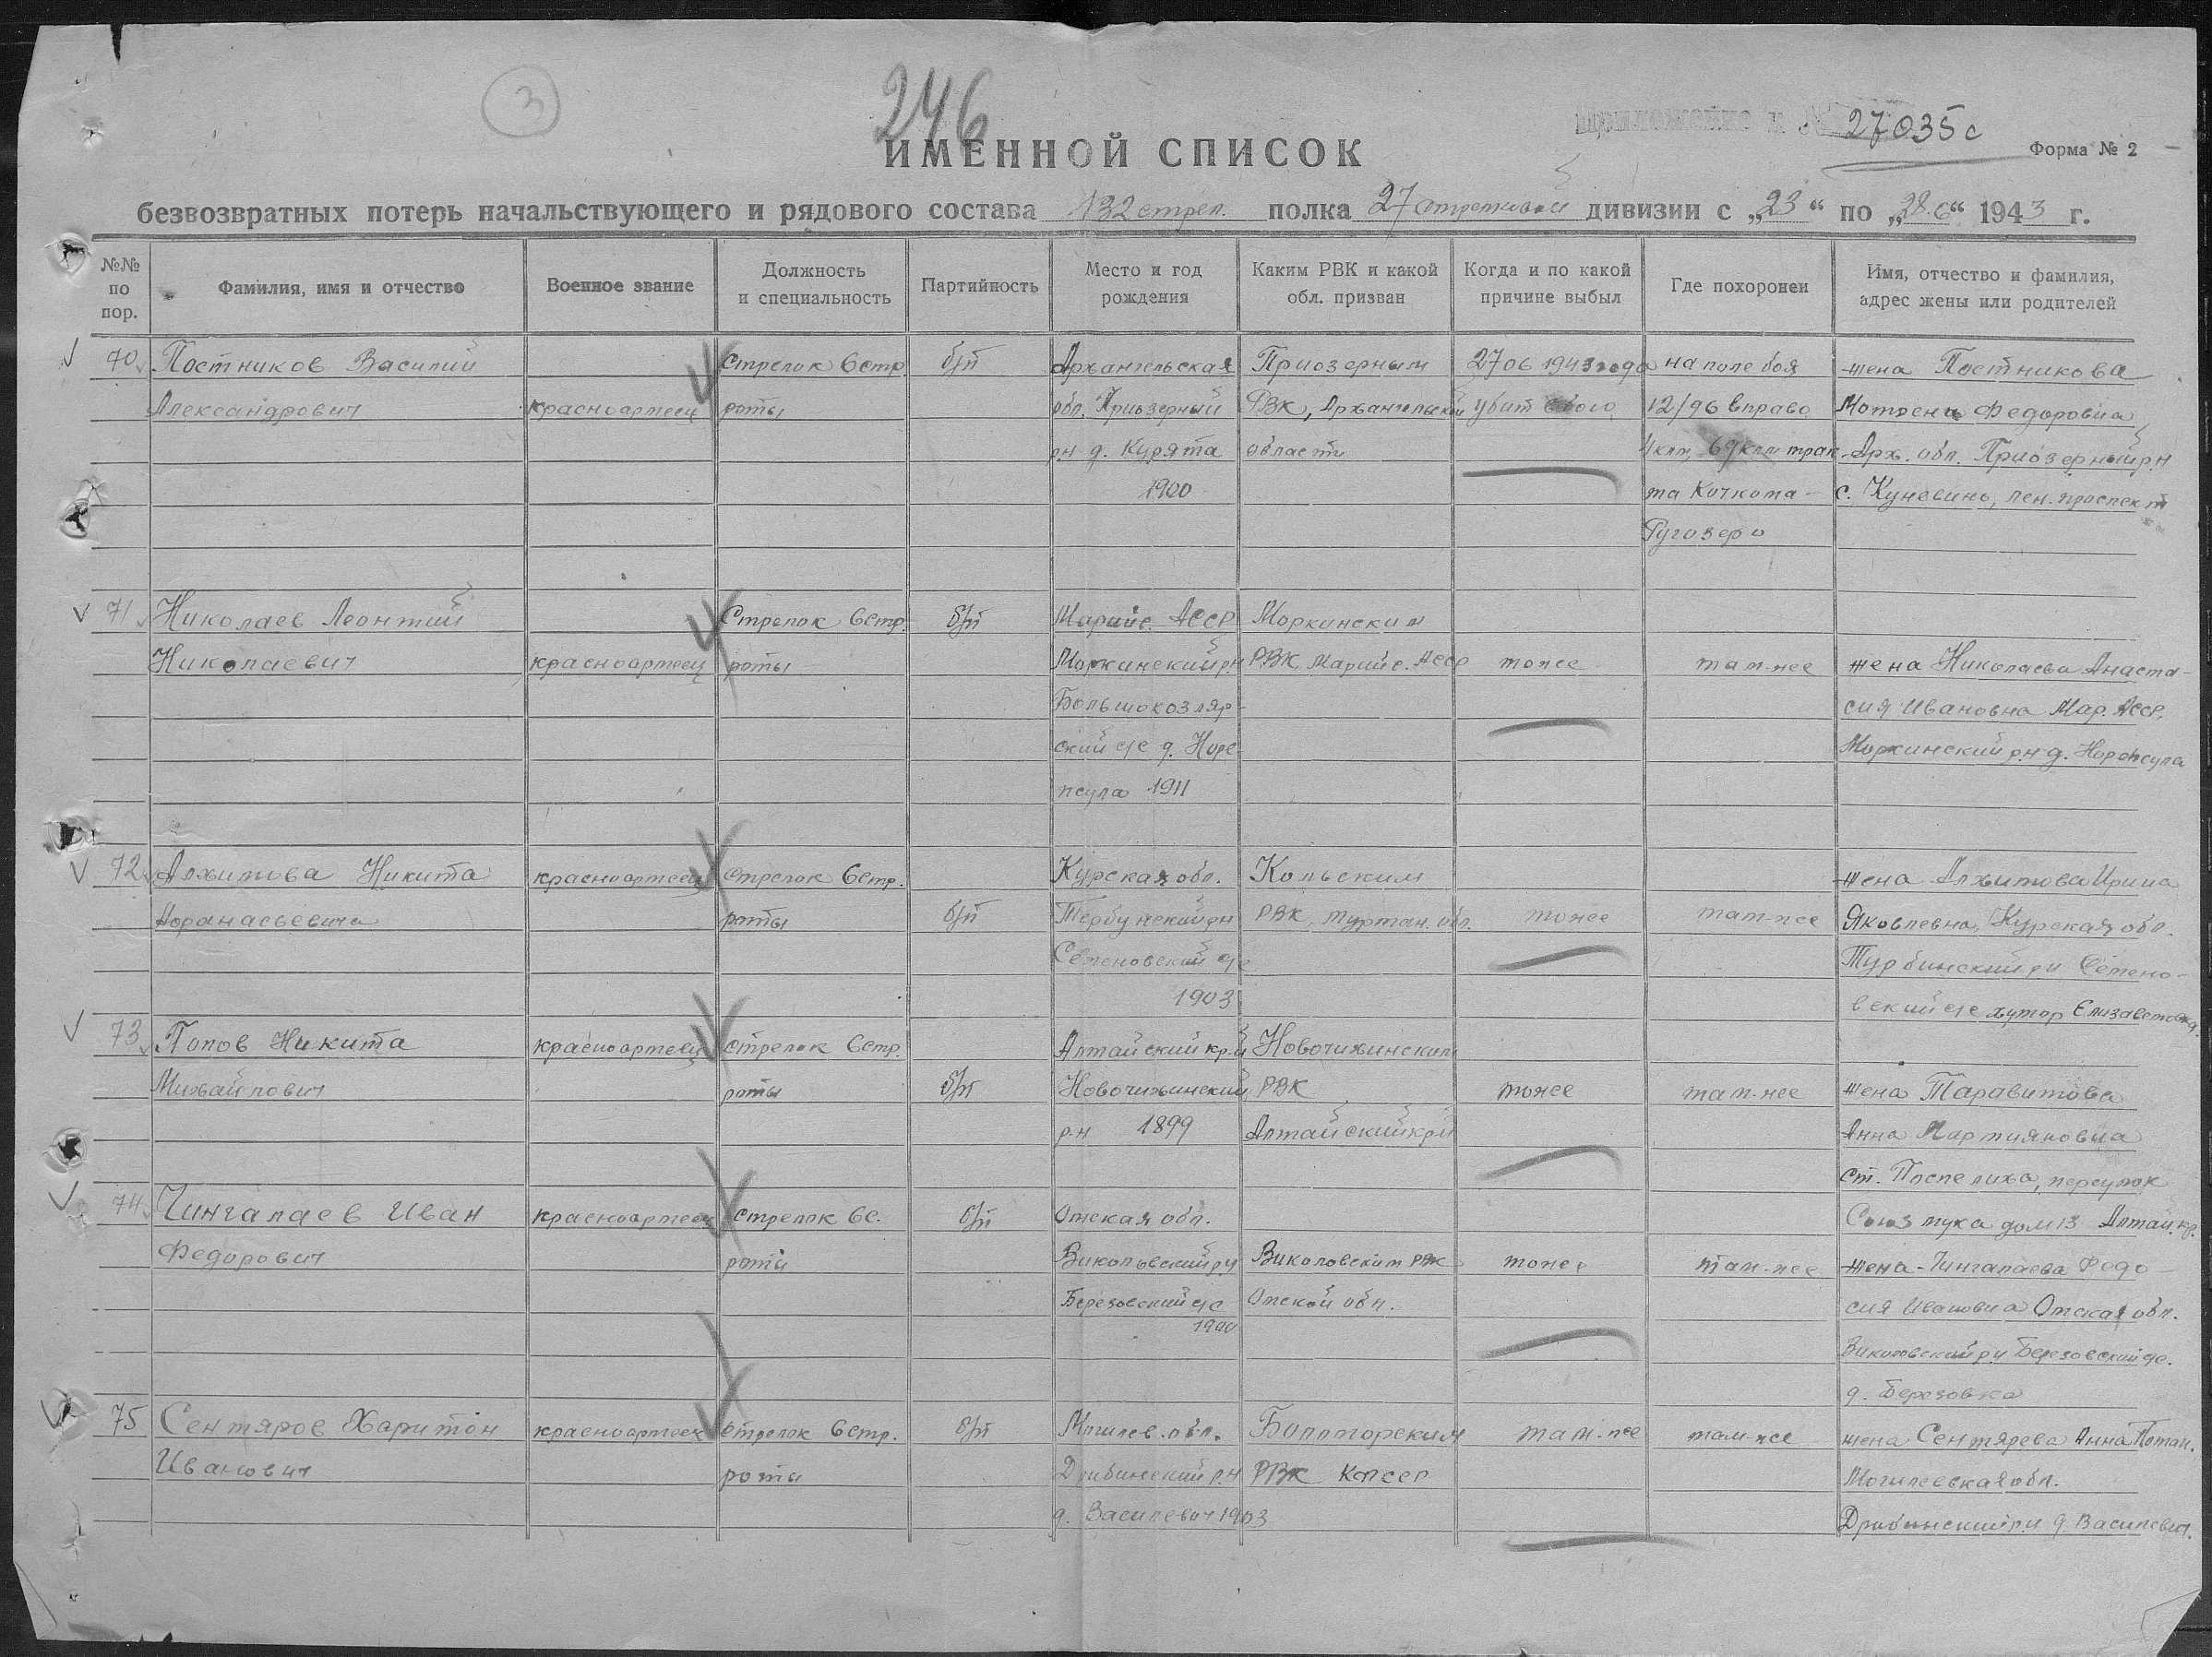 3
246
Приложение к № 27035с
ИМЕННОЙ СПИСОК
Форма № 2
безвозвратных потерь начальствующего и рядового состава 132 стрел. полка 27 стрелковой дивизии с „23“ по „28.6“ 1943 г.
№№ по пор.
Фамилия, имя и отчество
Военное звание
Должность и специальность
Партийность
Место и год рождения
Каким РВК и какой обл. призван
Когда и по какой причине выбыл
Где похоронен
Имя, отчество и фамилия, адрес жены или родителей
70 Постников Василий Стрелок 6 стр. б/п Архангельская Приозерным 27 06 1943 года на поле боя жена Постникова
Александрович красноармеец роты обл. Приозерный РВК, Архангельской убит 12/96 вправо Мотрена Федоровна
рн д. Курята области 4 клм, 69 клм трак- Арх. обл. Приозерный рн
1900 та Кочкома- с. Куневино, лен. проспект
Ругозеро
71 Николаев Леонтий Стрелок 6 стр. б/п Марийс. АССР Моркинским
Николаевич красноармеец роты Моркинский рн РВК Марийс. АССР тоже там-же жена Николаева Анаста-
Большокозляр- сия Ивановна Мар. АССР,
ский с/с д. Норе- Моркинский рн д. Норепсула
псула 1911
72 Алхитова Никита красноармеец стрелок 6 стр. Курская обл. Кольским жена Алхитова Ирина
Афанасьевича роты б/п Тербунский рн РВК, Мурман. обл. тоже там-же Яковлевна, Курская обл.
Семеновский с/с Турбинский рн Семено-
1903 вский с/с хутор Елизаветовка
73 Попов Никита красноармеец стрелок 6 стр. Алтайский кр-й Новочихинским
Михайлович роты б/п Новочихинский РВК тоже там-же жена Таравитова
р-н 1899 Алтайский край Анна Мартияновна
ст. Поспелиха, переулок
74 Чингалаев Иван красноармеец стрелок 6 с. б/п Омская обл. дом 13 Алтай. кр.
Федорович роты Викуловский рн Викуловским РВК тоже там-же жена-Чингалаева Федо-
Березовский с/с Омской обл. сия Ивановна Омская обл.
1900
Викуловский рн Березовский с/с.
д. Березовка
75 Сентяров Харитон красноармеец стрелок 6 стр. б/п Могилев. обл. Болтогорским там-же там-же жена Сентярева Анна Потап.
Иванович роты Дрибинский р.н РВК КФССР Могилевская обл.
д. Василевич 1903 Дрибинский р.н д. Василевич.